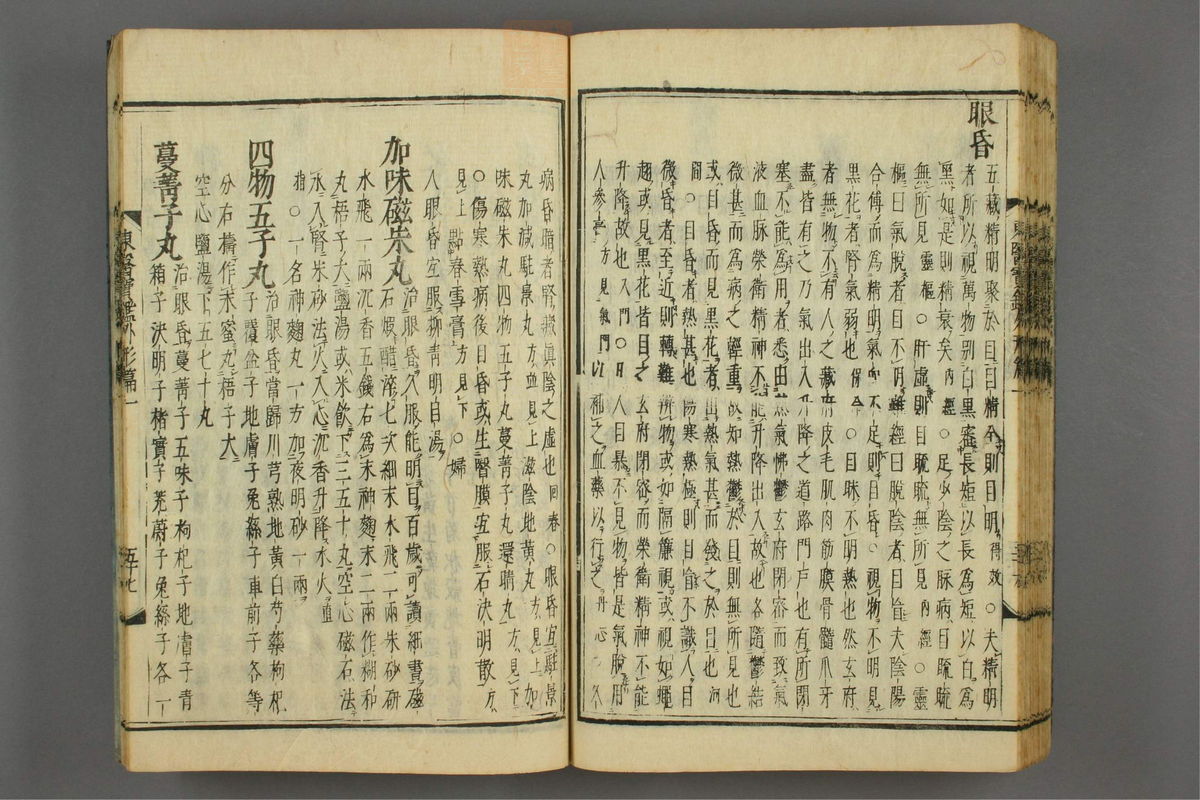 眼昏
五藏精明聚於目目精全則目明得效○夫精明
者所以視萬物別白黑審長短以長爲短以白爲
黑如是則精衰矣內經○足少陰之脉病目䀮䀮
無所見靈樞○肝虛則目䀮䀮無所見內經○靈
樞曰氣脫者目不明難經曰脫陰者目盲夫陰陽
合傅而爲精明氣不足則目昏○視物不明見
黑花者腎氣弱也○目昧不明熱也然玄府
者無物不有人之藏府皮毛肌肉筋膜骨髓爪牙
盡皆有之乃氣出入升降之道路門戶也有所閉
塞不能爲用者悉由熱氣怫鬱玄府閉密而致氣
液血脉榮衛精神不能升降出入故也各隨鬱結
微甚而爲病之輕重故知熱鬱於目則無所見也
或目昏而見黑花者由熱氣甚而發之於目也河
間○目昏者熱甚也傷寒熱極則目盲不識人目
微昏者至近則轉難辨物或如隔簾視或視如蠅
翅或見黑花皆目之玄府閉密而榮衛精神不能
升降故也入門○人目暴不見物皆是氣脫用
人參膏方見氣門以補之血藥以行之丹心○久
病昏暗者腎藏眞陰之虛也回春○眼昏宜駐景
丸加減駐景丸方見上滋陰地黃丸方見上加
味磁朱丸四物五子丸蔓菁子丸還睛丸方見下
○傷寒熱病後目昏或生瞖膜宜服石決明散方
見上點春雪膏方見下○婦
人眼昏宜服抑靑明目湯
加味磁朱丸 治眼昏久服能明目百歲可讀細書磁
石煆醋淬七次細末水飛二兩朱砂硏
水飛一兩沉香五錢右爲末神麴末二兩作糊和
丸梧子大鹽湯或米飮下三五十丸空心磁石法
水入腎朱砂法火入心沉香升降水火直
指○一名神麴丸一方加夜明砂一兩
四物五子丸 治眼昏當歸川芎熟地黃白芍藥枸杞
子覆盆子地膚子兔絲子車前子各等
分右擣作末蜜丸梧子大
空心鹽湯下五七十丸
蔓菁子丸 治眼昏蔓菁子五味子枸杞子地膚子靑
箱子決明子楮實子茺蔚子兔絲子各一
東醫寶鑑外形篇一
五十七